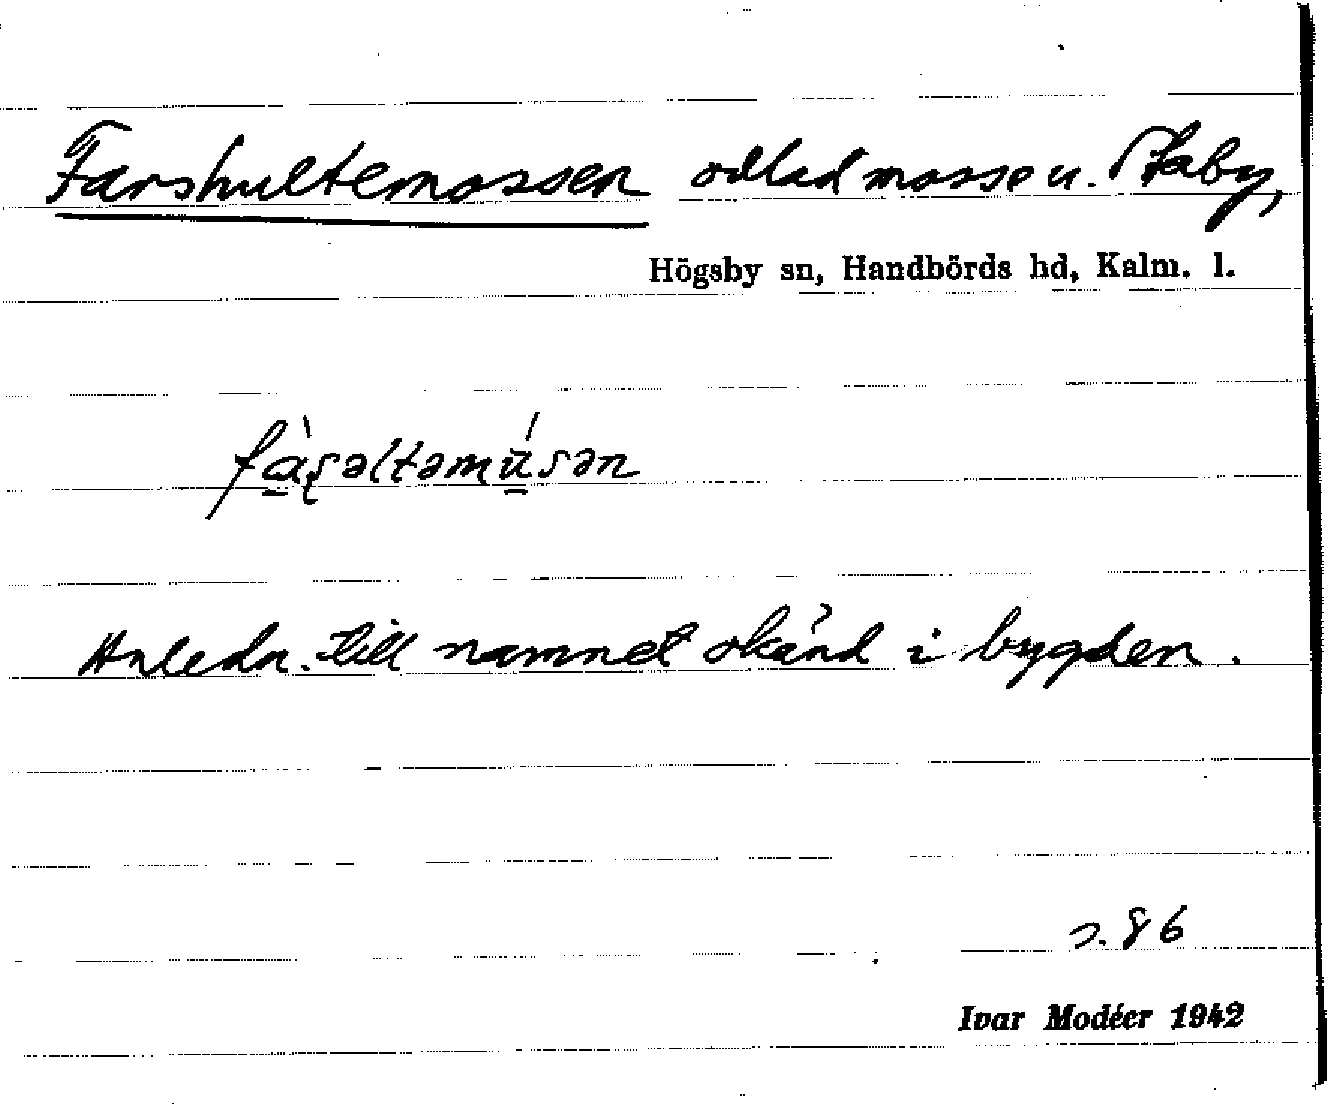 Farshultemossen odlad mosse u. Staby,
Högsby sn, Handbörds hd, Kalm. l.
fàʂəltəmúsən
Anledn. till namnet okänd i bygden.
s. 86
Ivar Modéer 1942